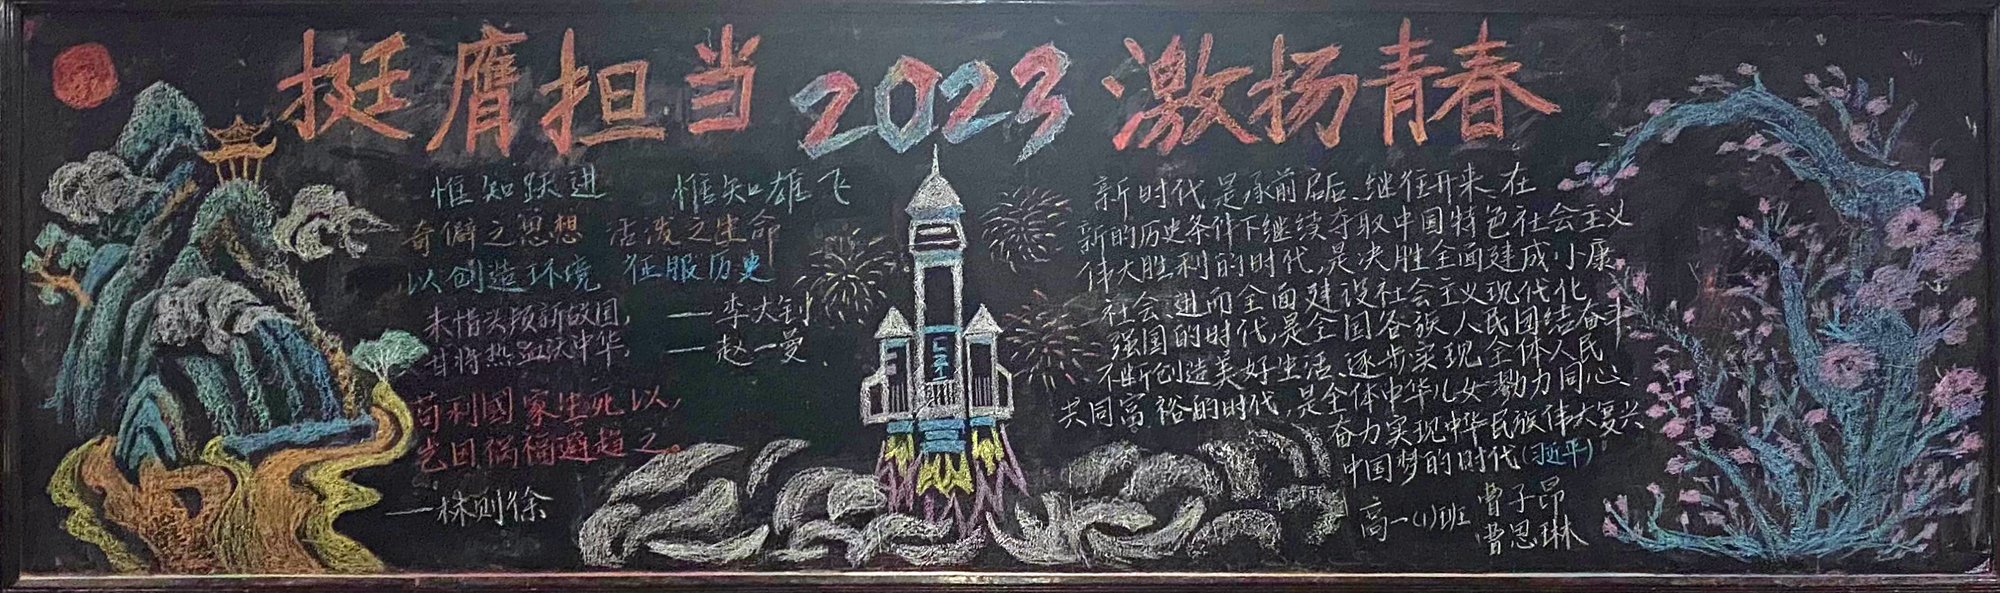 挺膺担当 2023 激扬青春
惟知跃进 惟知雄飞
奇僻之思想 活泼之生命
以创造环境 征服历史
——李大钊
未惜头颅新故国，
甘将热血沃中华，
——赵一曼
苟利國家生死以，
岂因祸福避趋之。
——林则徐
新时代是承前启后、继往开来、在
新的历史条件下继续夺取中国特色社会主义
伟大胜利的时代，是决胜全面建成小康
社会、进而全面建设社会主义现代化
强国的时代，是全国各族人民团结奋斗
不断创造美好生活、逐步实现全体人民
共同富裕的时代，是全体中华儿女勠力同心、
奋力实现中华民族伟大复兴
中国梦的时代(习近平)
高一(1)班 曹子昂
曹思琳